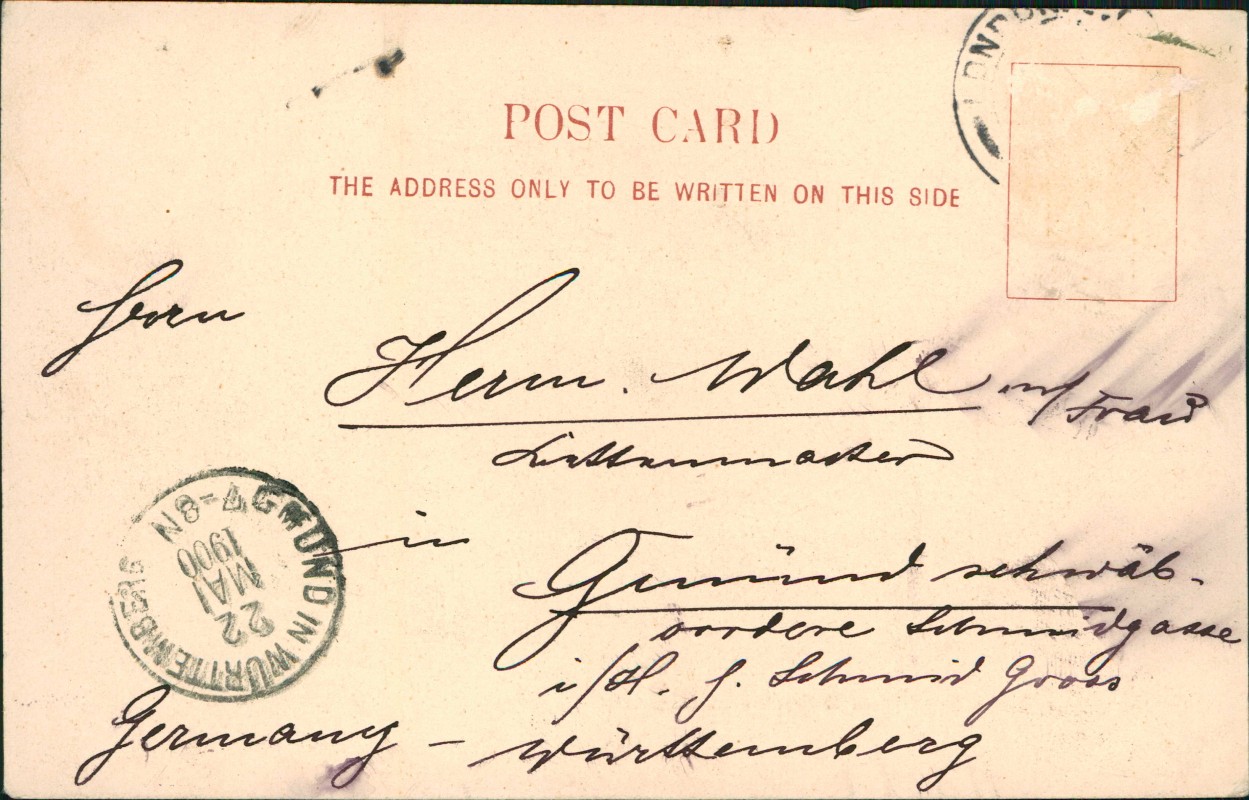 LONDON
POST CARD
THE ADDRESS ONLY TO BE WRITTEN ON THIS SIDE
Herrn
Herm. Wahl m/ Frau
Kettenmacher
in
Gmünd schwäb.
vordere Schmidgasse
i/H. J. Schmid Gross
Germany – Württemberg
GMUND IN WÜRTTEMBERG
22
MAI
1900
7-8N